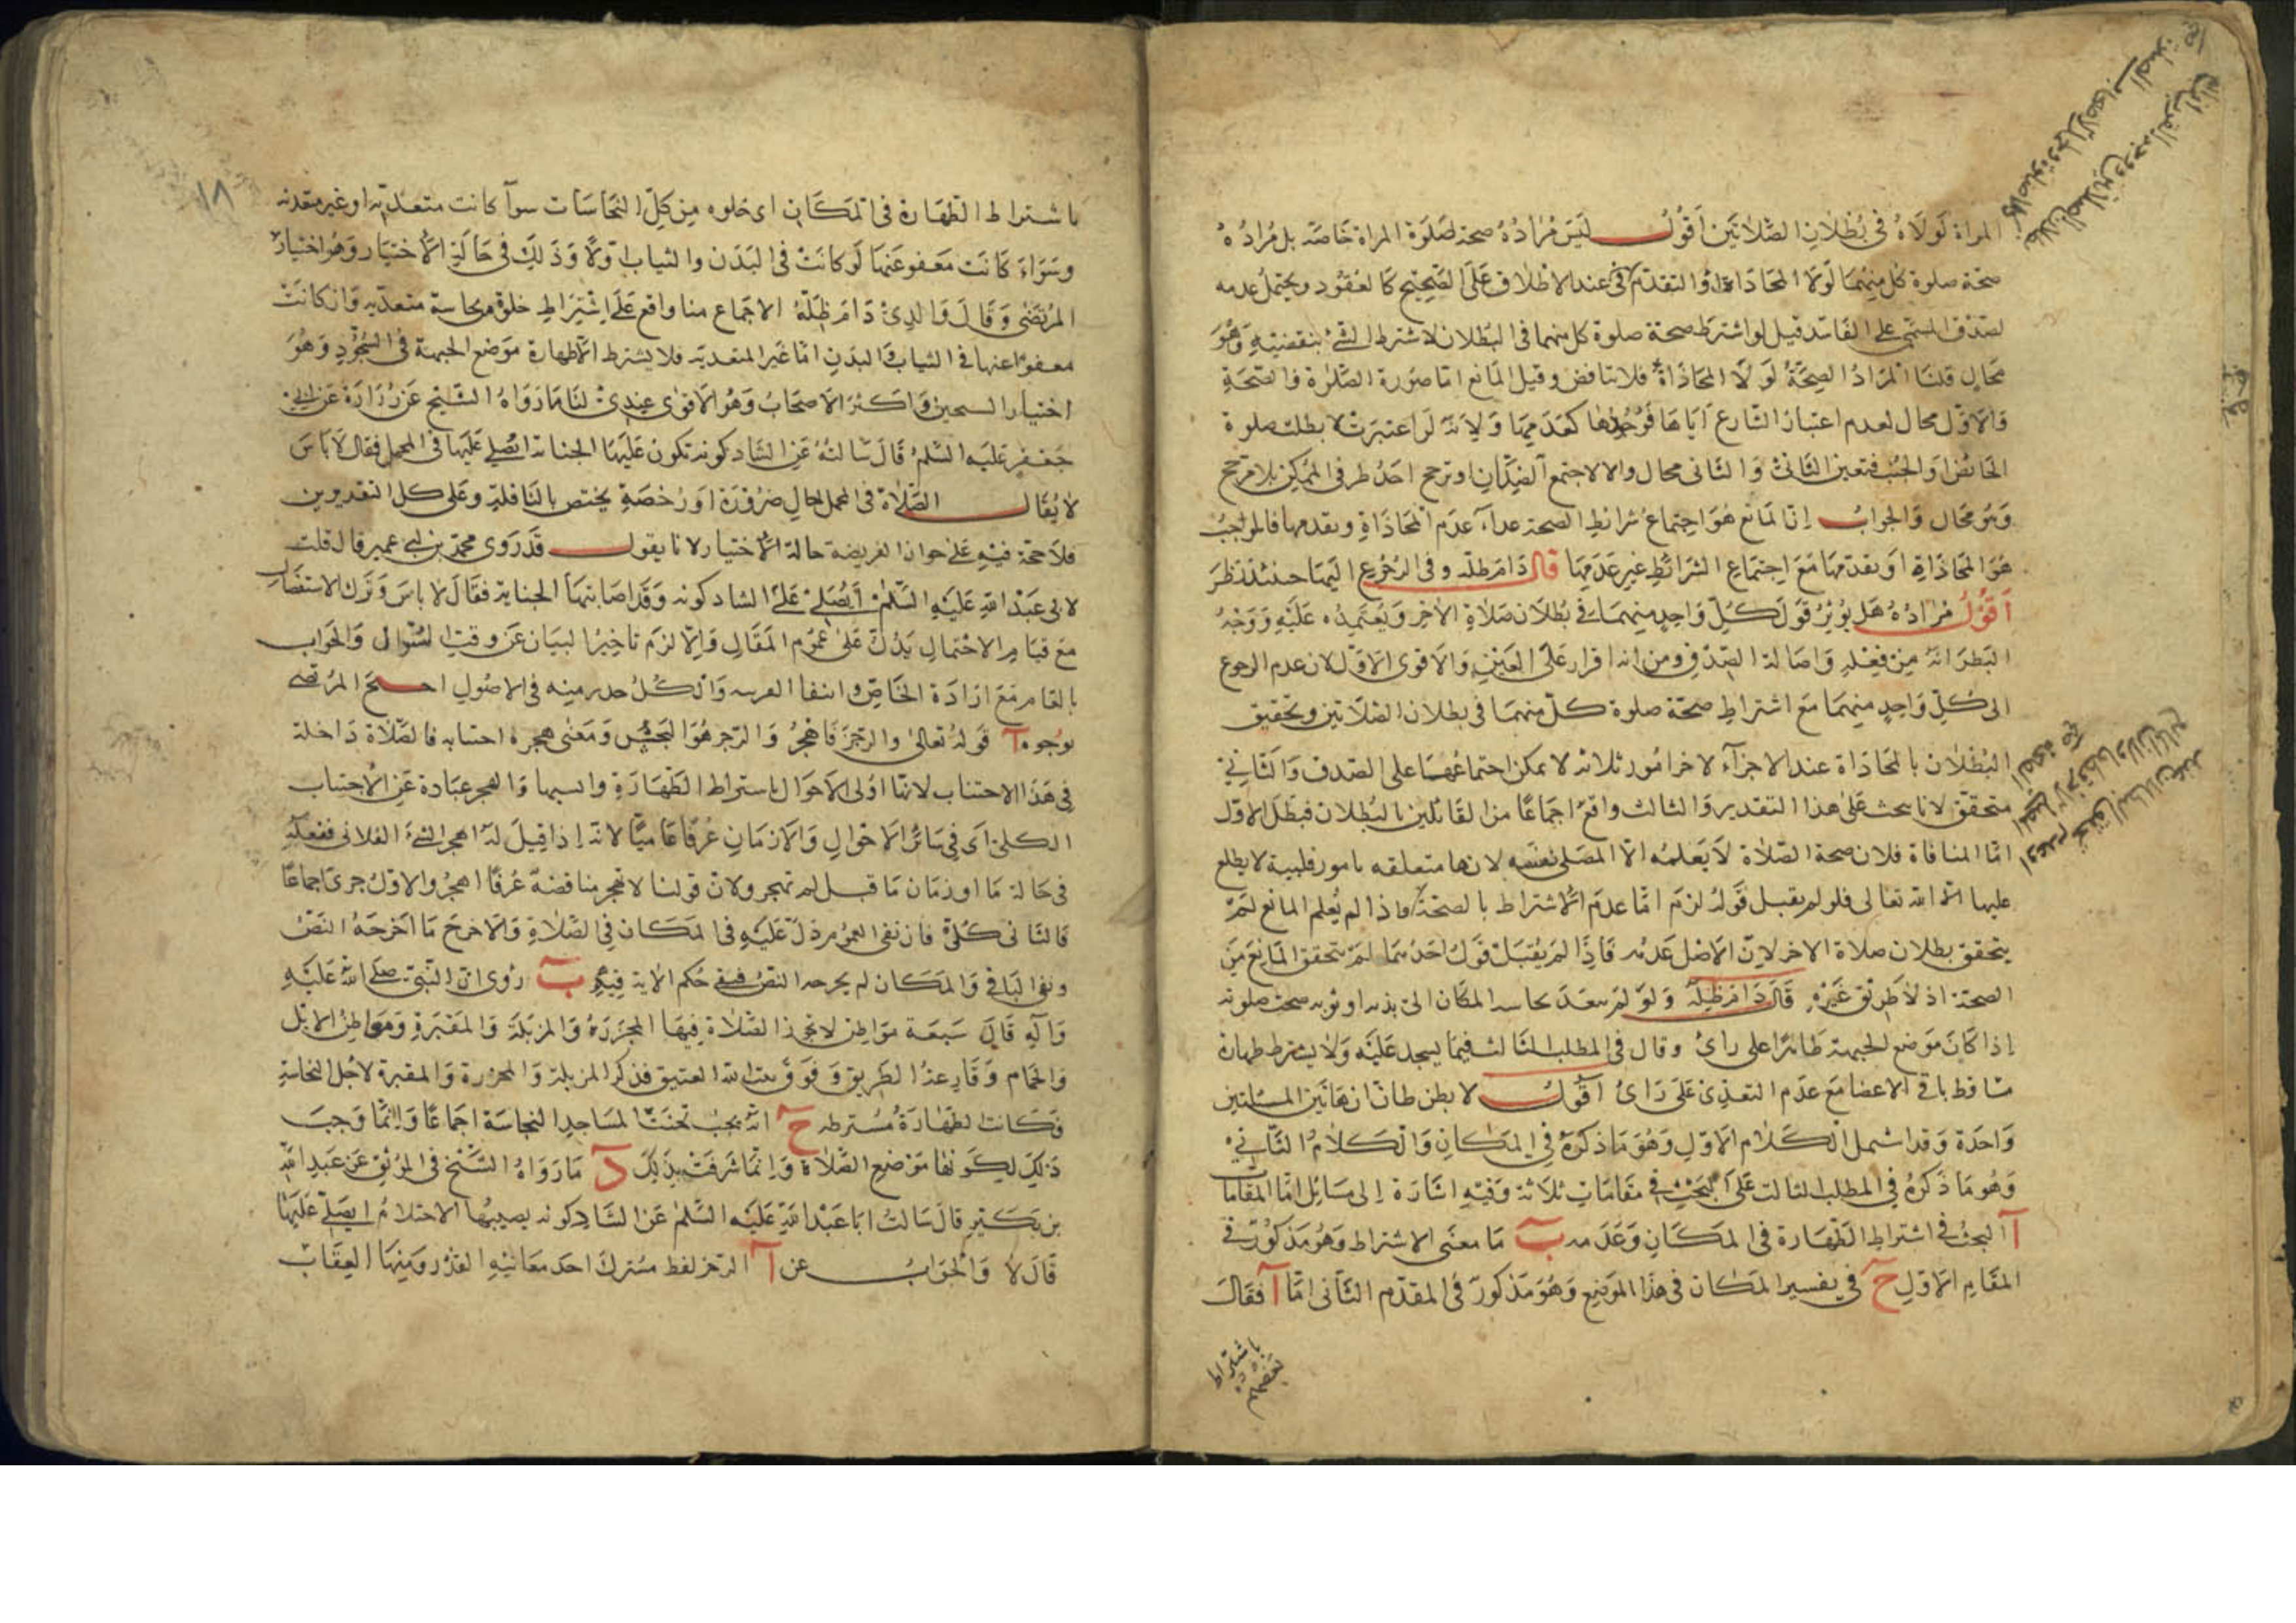 المراة لولاه في بطلان الصلاتين اقول ليس مراده صحة صلوة المراة خاصة بل مراده
صحة صلوة كل منهما لولا المحاذاة او التقدم عند الاطلاق على الصحيح كالعقود ويحتمل عدمه
لصدق المسمى على الفاسد قيل لو اشترط صحة صلوة كل منهما في البطلان لاشترط الشئ بنقضيته وهو
محال قلنا المراد الصحة لولا المحاذاة فلا تناقض وقيل المانع اما صورة الصلاة والصحة
والاول محال لعدم اعتبار الشارع اياها فوجودها كعدمها ولانه لو اعتبرت لابطلت صلوة
الحائض والجنب فتعين الثاني والثاني محال والا لاجتمع الضدان او ترجح احد طرفي الممكن بلا مرجح
وهو محال والجواب ان المانع هو اجتماع شرائط الصحة عداء عدم المحاذاة وتقدمها فالموجب
هو المحاذاة او تقدمها مع اجتماع الشرائط غير عدمها قال دام ظله وفي الرجوع اليها حينئذ نظر
اقول مراده هل يؤثر قول كل واحد منهما في بطلان صلاة الاخر ويعتمد عليه ووجه
النظر انه من فعله واصالة الصدق ومن انه اقرار على الغير والاقوى الاول لان عدم الرجوع
الى كل واحد منهما مع اشتراط صحة صلوة كل منهما في بطلان الصلاتين وتحقيق
البطلان بالمحاذاة عند الاجزاء لاخر امور ثلاثة لا يمكن اجتماعها على الصدق والثاني
متحقق لانا نبحث على هذا التقدير والثالث واقع اجماعا من القائلين بالبطلان فبطل الاول
اما المنافاة فلان صحة الصلاة لا يعلمه الا المصلى نفسه لانها متعلقه بامور قلبية لا يطلع
عليها الا الله تعالى فلو لم يقبل قوله لزم اما عدم الاشتراط بالصحة واذا لم يعلم المانع لم
يتحقق بطلان صلاة الاخر لان الاصل عدمه فاذا لم يقبل قول احدهما لم يتحقق المانع من
الصحة اذ لا طريق غيره قال دام ظله ولو لم يتعد نجاسة المكان الى بدنه او ثوبه صحت صلوته
اذا كان موضع الجبهة طاهرا على راى وقال في المطلب الثالث فيما يسجد عليه ولا يشترط طهارة
مساقط باقي الاعضا مع عدم التعدي على راى اقول لا يظن ظان ان هاتين المسئلتين
واحدة وقد اشتمل الكلام الاول وهو ما ذكره في المكان والكلام الثاني
وهو ما ذكره في المطلب الثالث على البحث في مقامات ثلاثة وفيه اشارة الى مسائل اما المقامات
آ البحث في اشتراط الطهارة في المكان وعدمه ب ما معنى الاشتراط وهو مذكور في
المقام الاول ح في تفسير المكان في هذا الموضع وهو مذكور في المقدم الثاني اما آ فقال
باشتراط
بعضهم
١٨
باشتراط الطهارة في المكان اى خلوه من كل النجاسات سوآ كانت متعدية او غير متعدية
وسواء كانت معفو عنها لو كانت في البدن والثياب اولا وذلك في حالة الاختيار وهو اختيار
المرتضى وقال والدى دام ظله الاجماع منا واقع على اشتراط خلوه من نجاسة متعدية وان كانت
معفوا عنها في الثياب والبدن اما غير المتعدية فلا يشترط الا طهارة موضع الجبهة في السجود وهو
اختيار الشيخين واكثر الاصحاب وهو الاقوى عندى لنا ما رواه الشيخ عن زرارة عن ابي
جعفر عليه السلم قال سالته عن الشادكونه تكون عليها الجنابة ايصلى عليها في المحمل فقال لا باس
لا يقال الصلاة في المحمل حال ضرورة او رخصة يختص بالنافلة وعلى كل التقديرين
فلا حجة فيه على جواز الفريضة حالة الاختيار لانا يقول قد روى محمد بن ابي عمير قال قلت
لابي عبد الله عليه السلم ايصلى على الشادكونه وقد اصابتها الجنابة فقال لا باس وترك الاستفصال
مع قيام الاحتمال يدل على عموم المقال والا لزم تاخير البيان عن وقت السؤال والجواب
بالعام مع ارادة الخاص وانتفا القرينة والكل حد ر منه في الاصول احتج المرتضى
بوجوه آ قوله تعالى والرجز فاهجر والرجز هو النجس ومعنى هجره اجتنابه فالصلاة داخلة
في هذا الاجتناب لانها اولى الاحوال باشتراط الطهارة وانسبها والهجر عبارة عن الاجتناب
الكلى اى في سائر الاحوال والازمان عرفا عاميا لانه اذا قيل له اهجر الشئ الفلانى ففعله
في حالة ما او زمان ما قيل لم تهجر ولان قولنا لا تهجر مناقضه عرفا اهجر والاول جرى اجماعا
فالثانى كلى فان نفى العموم دل عليه في المكان في الصلاة والاخرج ما اخرجه النص
وبقى الباقي والمكان لم يخرجه النص فبقى حكم الاية فيه ب روى ان النبي صلى الله عليه
وآله قال سبعة مواطن لا تجوز الصلاة فيها المجزرة والمزبلة والمقبرة ومواطن الابل
والحمام وقارعة الطريق وفوق بيت الله العتيق فذكر المزبلة والمجزرة والمقبرة لاجل النجاسة
فكانت الطهارة مشترطه ح انه يجب تجنب المساجد النجاسة اجماعا وانما وجب
ذلك لكونها موضع الصلاة وانما شرفت بذلك د ما رواه الشيخ في الموثق عن عبد الله
بن بكير قال سالت ابا عبد الله عليه السلم عن الشادكونه يصيبها الاحتلام ايصلى عليها
قال لا والجواب عن آ الرجز لفظ مشترك احد معانيه القذر ومنها العقاب